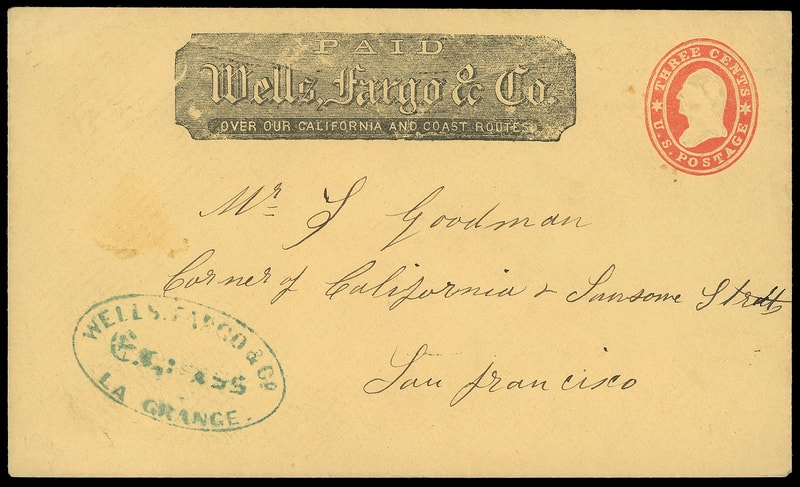 PAID
Wells, Fargo & Co.
OVER OUR CALIFORNIA AND COAST ROUTES.
THREE CENTS
U.S. POSTAGE
Mr S Goodman
Corner of California & Sansome Strdt
San francisco
WELLS, FARGO & CO
Express
LA GRANGE.